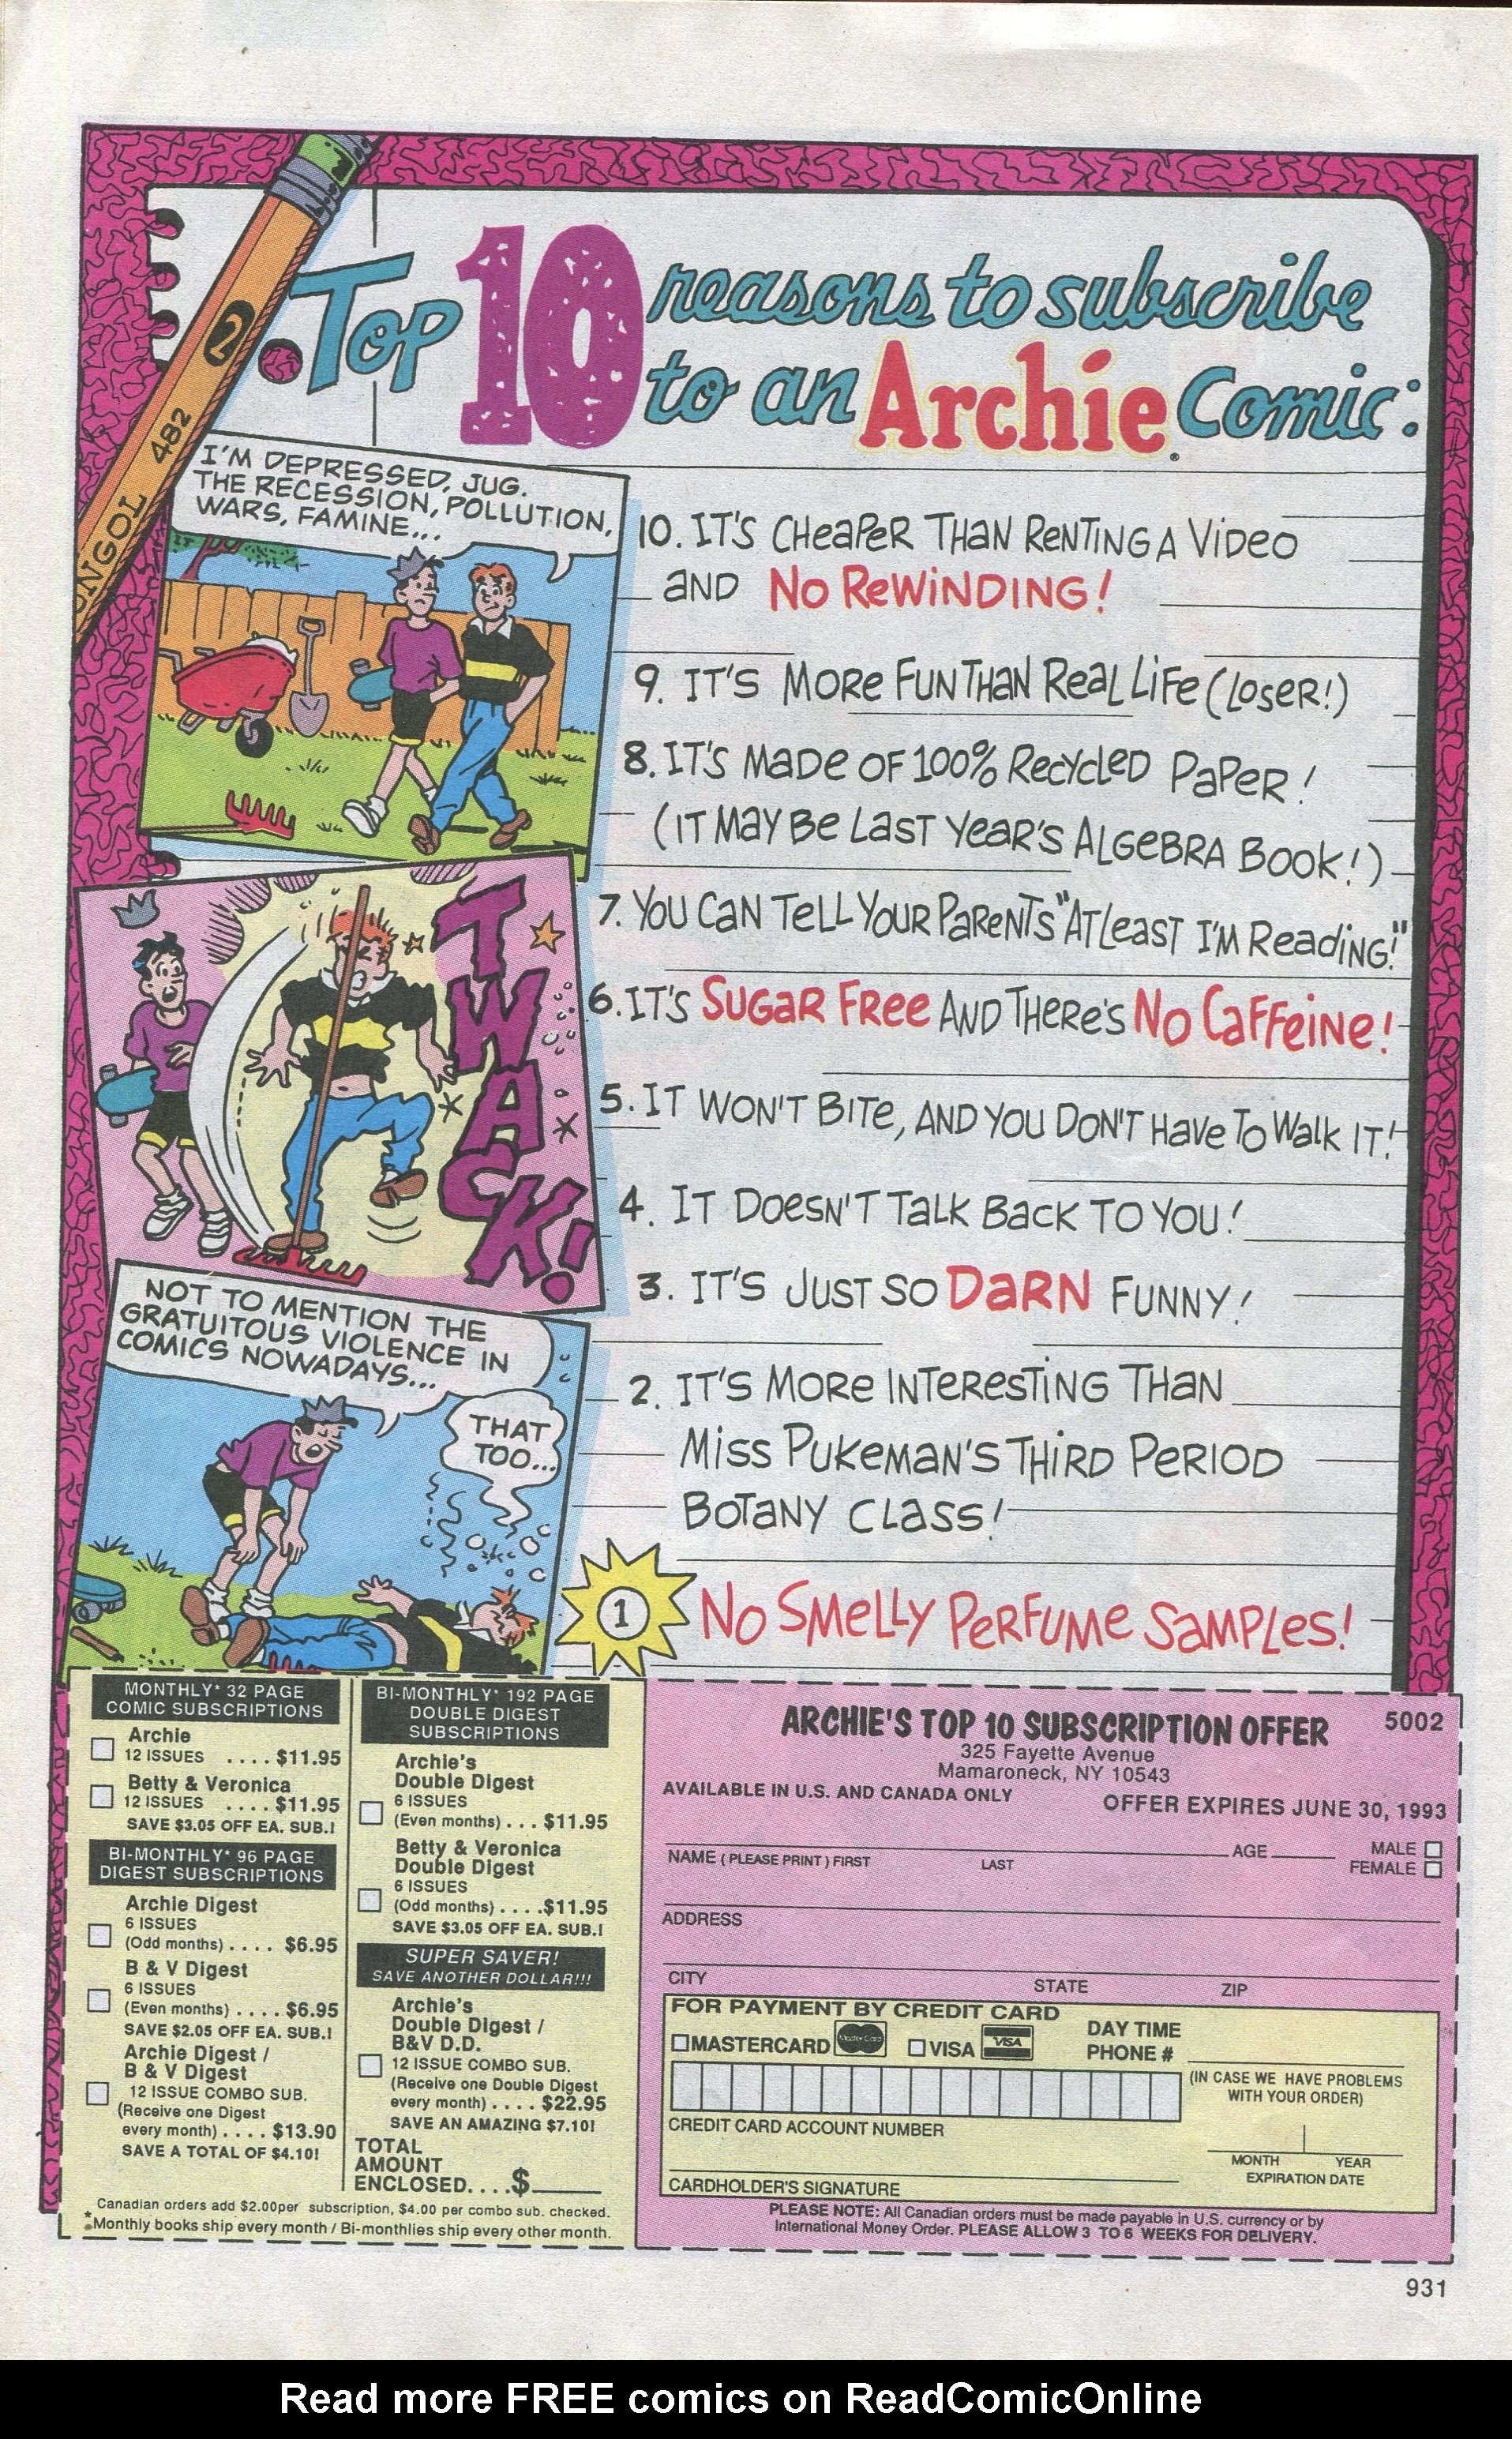 Top 10 reasons to subscribe
to an Archie Comic:
2
482
I'M DEPRESSED, JUG.
THE RECESSION, POLLUTION,
WARS, FAMINE...
10. IT'S CHEAPER THAN RENTING A VIDEO
AND NO REWINDING!
9. IT'S MORE FUN THAN REAL LIFE (LOSER!)
8. IT'S MADE OF 100% RECYCLED PAPER!
(IT MAY BE LAST YEAR'S ALGEBRA BOOK!)
7. YOU CAN TELL YOUR PARENTS "AT LEAST I'M READING!"
6. IT'S SUGAR FREE AND THERE'S NO CAFFEINE!
5. IT WON'T BITE, AND YOU DON'T HAVE TO WALK IT!
4. IT DOESN'T TALK BACK TO YOU!
3. IT'S JUST SO DARN FUNNY!
2. IT'S MORE INTERESTING THAN
MISS PUKEMAN'S THIRD PERIOD
BOTANY CLASS!
1 NO SMELLY PERFUME SAMPLES!
TWACK!
NOT TO MENTION THE
GRATUITOUS VIOLENCE IN
COMICS NOWADAYS...
THAT
TOO...
MONTHLY* 32 PAGE
COMIC SUBSCRIPTIONS
Archie
12 ISSUES .... $11.95
Betty & Veronica
12 ISSUES .... $11.95
SAVE $3.05 OFF EA. SUB.!
BI-MONTHLY* 96 PAGE
DIGEST SUBSCRIPTIONS
Archie Digest
6 ISSUES
(Odd months) .... $6.95
B & V Digest
6 ISSUES
(Even months) .... $6.95
SAVE $2.05 OFF EA. SUB.!
Archie Digest /
B & V Digest
12 ISSUE COMBO SUB.
(Receive one Digest
every month) .... $13.90
SAVE A TOTAL OF $4.10!
BI-MONTHLY* 192 PAGE
DOUBLE DIGEST
SUBSCRIPTIONS
Archie's
Double Digest
6 ISSUES
(Even months) ... $11.95
Betty & Veronica
Double Digest
6 ISSUES
(Odd months) .... $11.95
SAVE $3.05 OFF EA. SUB.!
SUPER SAVER!
SAVE ANOTHER DOLLAR!!!
Archie's
Double Digest /
B&V D.D.
12 ISSUE COMBO SUB.
(Receive one Double Digest
every month) .... $22.95
SAVE AN AMAZING $7.10!
TOTAL
AMOUNT
ENCLOSED....$
Canadian orders add $2.00per subscription, $4.00 per combo sub. checked.
*Monthly books ship every month / Bi-monthlies ship every other month.
ARCHIE'S TOP 10 SUBSCRIPTION OFFER 5002
325 Fayette Avenue
Mamaroneck, NY 10543
AVAILABLE IN U.S. AND CANADA ONLY
OFFER EXPIRES JUNE 30, 1993
NAME ( PLEASE PRINT ) FIRST LAST AGE MALE
FEMALE
ADDRESS
CITY STATE ZIP
FOR PAYMENT BY CREDIT CARD
MASTERCARD MasterCard VISA VISA
DAY TIME
PHONE #
(IN CASE WE HAVE PROBLEMS
WITH YOUR ORDER)
CREDIT CARD ACCOUNT NUMBER
MONTH YEAR
EXPIRATION DATE
CARDHOLDER'S SIGNATURE
PLEASE NOTE: All Canadian orders must be made payable in U.S. currency or by
International Money Order. PLEASE ALLOW 3 TO 6 WEEKS FOR DELIVERY.
931
Read more FREE comics on ReadComicOnline